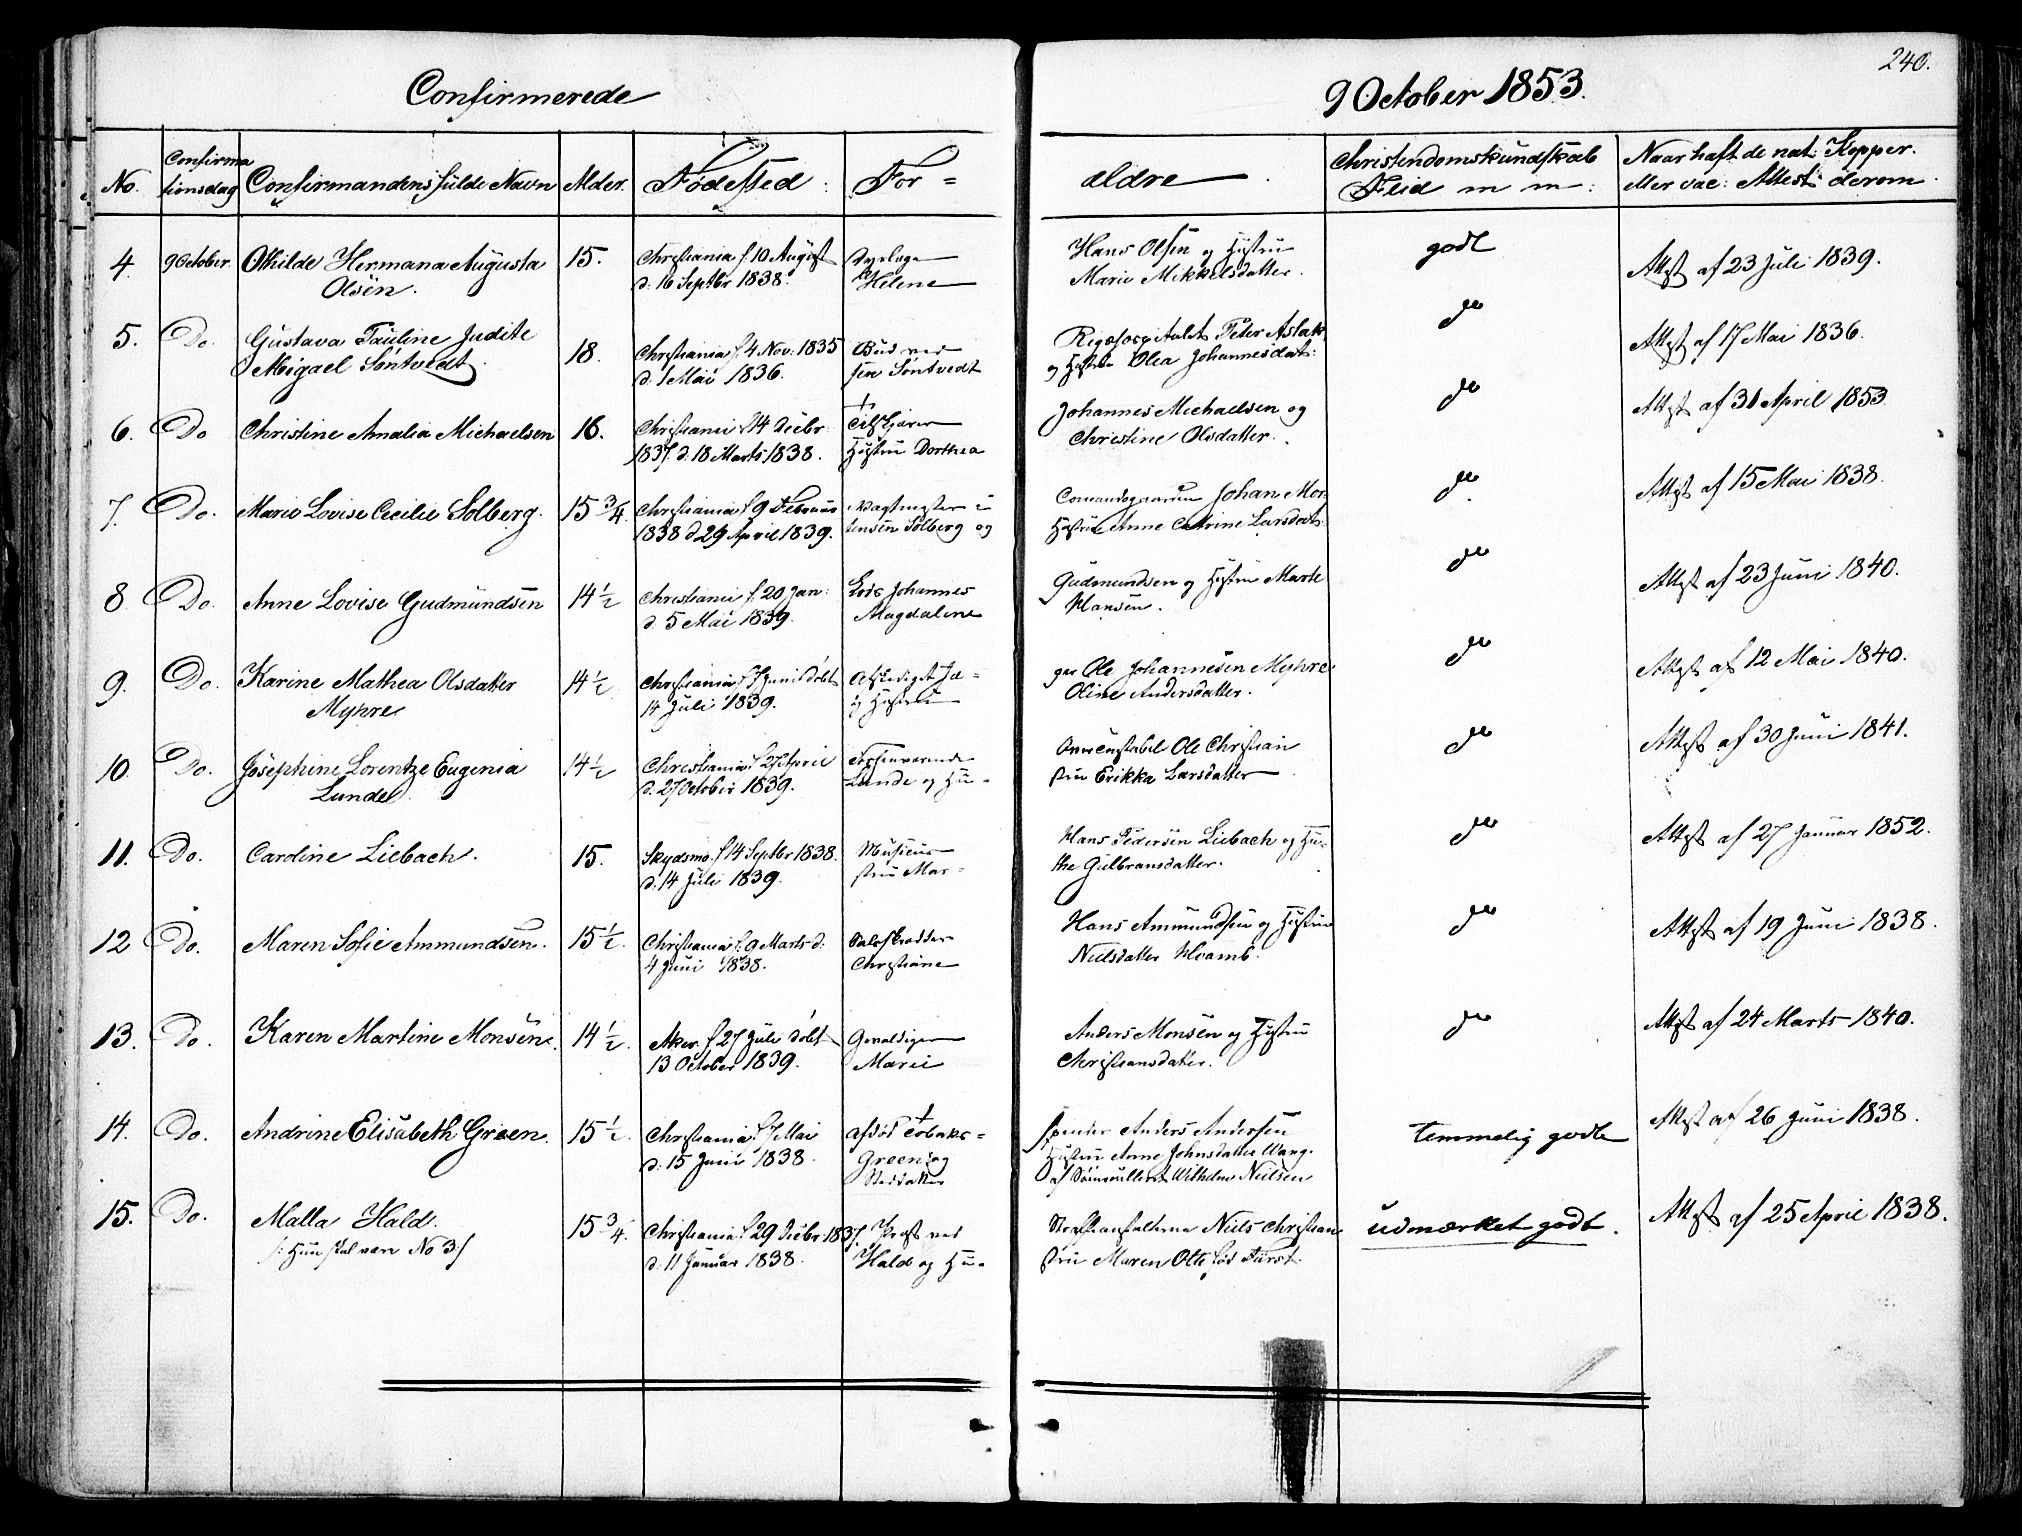 240.
Confirmerede
9 October 1853.
No.
Confirma
tionsdag
Confirmandens fulde Navn
Alder.
Fødested.
For=
ældre
Christendomskundskab
Flid m m:
Naar haft de nat: Kopper.
eller vac: Attest derom.
4 9 October. Othilde Hermana Augusta 15. Christiania f. 10 August
Olsen. d: 16 Septbr 1838. Helene
Hans Olsen og Hustru godt
Marie Mikkelsdatter. Attest af 23 Juli 1839.
5. Do. Gustava Pauline Judite 18. Christiania f. 4 Nov: 1835 Bud ved
Migael Søntvedt. d. 1 Mai 1836. sen Søntvedt
Rigshospitalet Peter Aslak do Attest af 17 Mai 1836.
og Hustru Olea Johannesdat:
6. Do Christine Amalia Michaelsen 16. Christiania 14 Decbr
1837. d: 18 Marts 1838. Hustru Dorthea
Johannes Michaelsen og do Attest af 31 April 1853.
Christine Olsdatter.
7. Do. Marie Lovise Cecilie Solberg. 15 3/4. Christiania f. 9 Februar Vagtmester i
1838 d 29 April 1839. tensen Solberg og
Johan Mor- do. Attest af 15 Mai 1838.
Hustru Anne Catrine Larsdat:
8 Do. Anne Lovise Gudmundsen 14 1/2 Christiania f. 20 Jan: Lods Johannes
d. 5 Mai 1839. Magdalene
Gudmundsen og Hustru Marte do Attest af 23 Juni 1840.
Hansen.
9. Do. Karine Mathea Olsdatter 14 1/2. Christiania f 7 Juni døbt Afskediget Jæ=
Myhre 14 Juli 1839. og Hustru
ger Ole Johannesen Myhre do Attest af 12 Mai 1840.
Oline Andersdatter.
10. Do. Josephine Lorentze Eugenia 14 1/2 Christiania f. 27 April Forhenværende
Lunde. d. 27 October 1839. Lunde og Hu-
Ole Christian do Attest af 30 Juni 1841.
stru Erikka Larsdatter
11. Do. Caroline Liebach. 15. Skydsmo. f 14 Septbr 1838. Musicus
d. 14 Juli 1839. stru Mar-
Hans Pedersen Liebach og Hu- do Attest af 27 Januar 1852.
the Gulbransdatter.
12 Do. Maren Sofie Ammundsen. 15 1/2. Christiania f. 9 Marts d:
4 Juni 1838. Christiane
Hans Ammundsen og Hustru do Attest af 19 Juni 1838.
Nielsdatter Hvamb.
13. Do. Karen Martine Monsen. 14 1/2. Aker. f 27 Juli døbt Gevaldiger
13 October 1839. Marie
Anders Monsen og Hustru do Attest af 24 Marts 1840.
Christiansdatter.
14. Do. Andrine Elisabeth Green. 15 1/2. Christiania f. 7 Mai afdød Tobaks=
d: 15 Juni 1838. Green og
Steddatter
spinder Anders Andersen Temmelig godt Attest af 26 Juni 1838.
Hustru Anne Johnsdatter Wang.
af Wilhelm Nielsen
15. Do. Malla Hald. 15 3/4. Christiania f 29 Decbr 1837. Præst ved
/: Hun skal være No 3 :/ d. 11 Januar 1838. Hald og Hu-
Strafanstalterne Niels Christian udmærket godt. Attest af 25 April 1838.
stru Maren Otte fød Fürst.